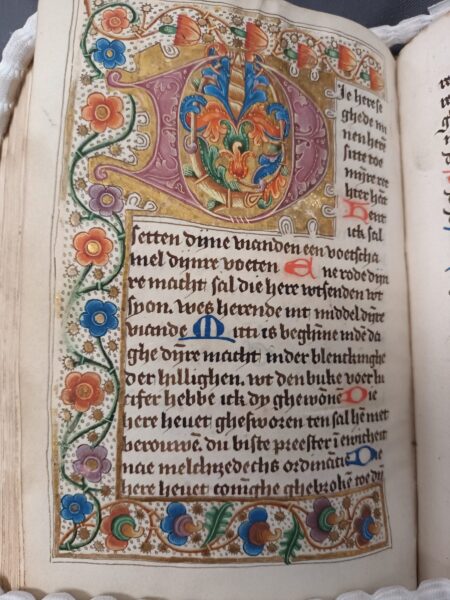 DIe herese
ghede mi
nen herē
sitte toe
mijnre rec
hter hāt
Bent
ick sal
setten dijne vianden een voetscha
mel dijnre voeten Ene rode dijn
re macht sal die here wtsenden wt
syon. wes herende int middel dijr̄e
viande Mitti is beghīne indē da
ghe dijr̄e macht inder blenckinghe
der hillighen. wt den buke voer lu
cifer hebbe ick dy ghewōnē Die
here heuet ghesworen ten sal hē niet
berouwē. du biste preester ī ewicheit
nae melchizedechs ordinātiē Die
here heuet conīghe ghebrokē toe dijn